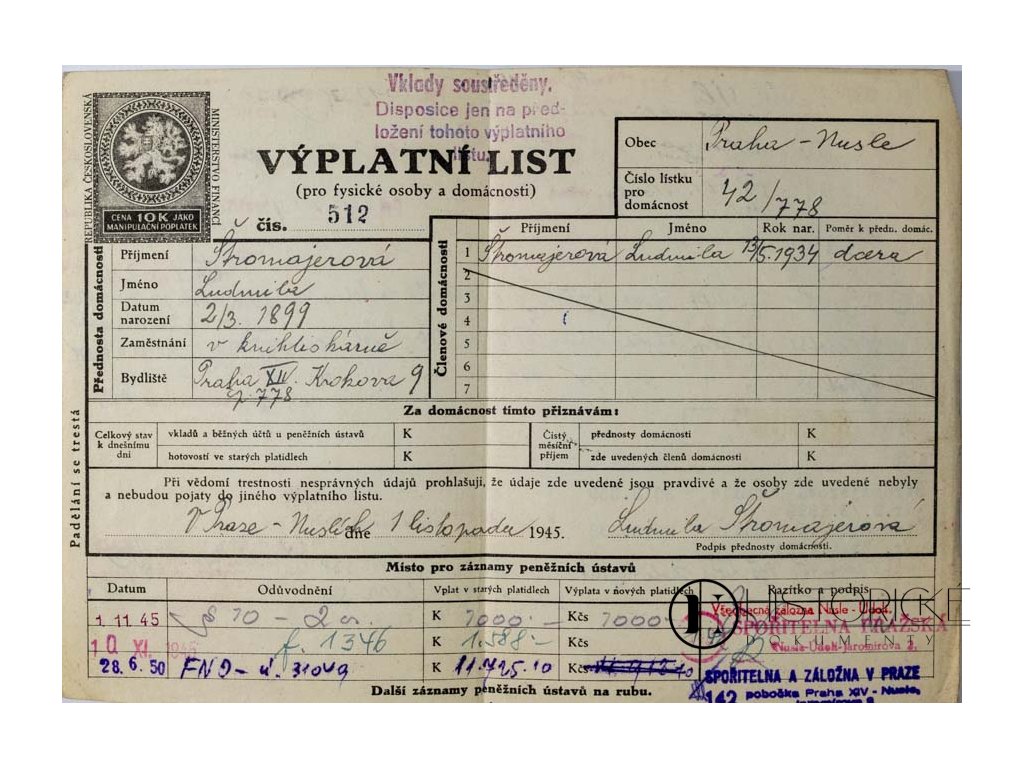 Vklady soustředěny.
Disposice jen na před-
ložení tohoto výplatního
listu.
REPUBLIKA ČESKOSLOVENSKÁ
MINISTERSTVO FINANCÍ
CENA 10K JAKO
MANIPULAČNÍ POPLATEK
VÝPLATNÍ LIST
(pro fysické osoby a domácnosti)
čís. 512
Obec Praha - Nusle
Číslo lístku pro domácnost 42/778
Přednosta domácnosti
Příjmení Štromajerová
Jméno Ludmila
Datum narození 2/3. 1899
Zaměstnání v knihtiskárně
Bydliště Praha XIV. Krokova 9
čp. 778
Členové domácnosti
Příjmení Jméno Rok nar. Poměr k předn. domác.
1 Štromajerová Ludmila 13/5. 1934 dcera
2
3
4
5
6
7
Padělání se trestá
Za domácnost tímto přiznávám:
Celkový stav k dnešnímu dni
vkladů a běžných účtů u peněžních ústavů K
hotovostí ve starých platidlech K
Čistý měsíční příjem
přednosty domácnosti K
zde uvedených členů domácnosti K
Při vědomí trestnosti nesprávných údajů prohlašuji, že údaje zde uvedené jsou pravdivé a že osoby zde uvedené nebyly
a nebudou pojaty do jiného výplatního listu.
V Praze - Nuslích dne 1 listopadu 1945. Ludmila Štromajerová
Podpis přednosty domácnosti.
Místo pro záznamy peněžních ústavů
Datum Odůvodnění Vplat v starých platidlech Výplata v nových platidlech Razítko a podpis
1. 11. 45 § 10 - 2 os. K 7000.- Kčs 7000.-
Všeobecná záložna Nusle - Údol.
HISTORICKÉ
DOKUMENTY
SPOŘITELNA PRAŽSKÁ
10 XI. 1945 f. 1346 K 1.588.- Kčs
Nusle-Údolí-Jaromírova
28. 6. 50 FND - ú. 31049 K 11.725.10 Kčs
SPOŘITELNA A ZÁLOŽNA V PRAZE
142 pobočka Praha XIV - Nusle,
Další záznamy peněžních ústavů na rubu.